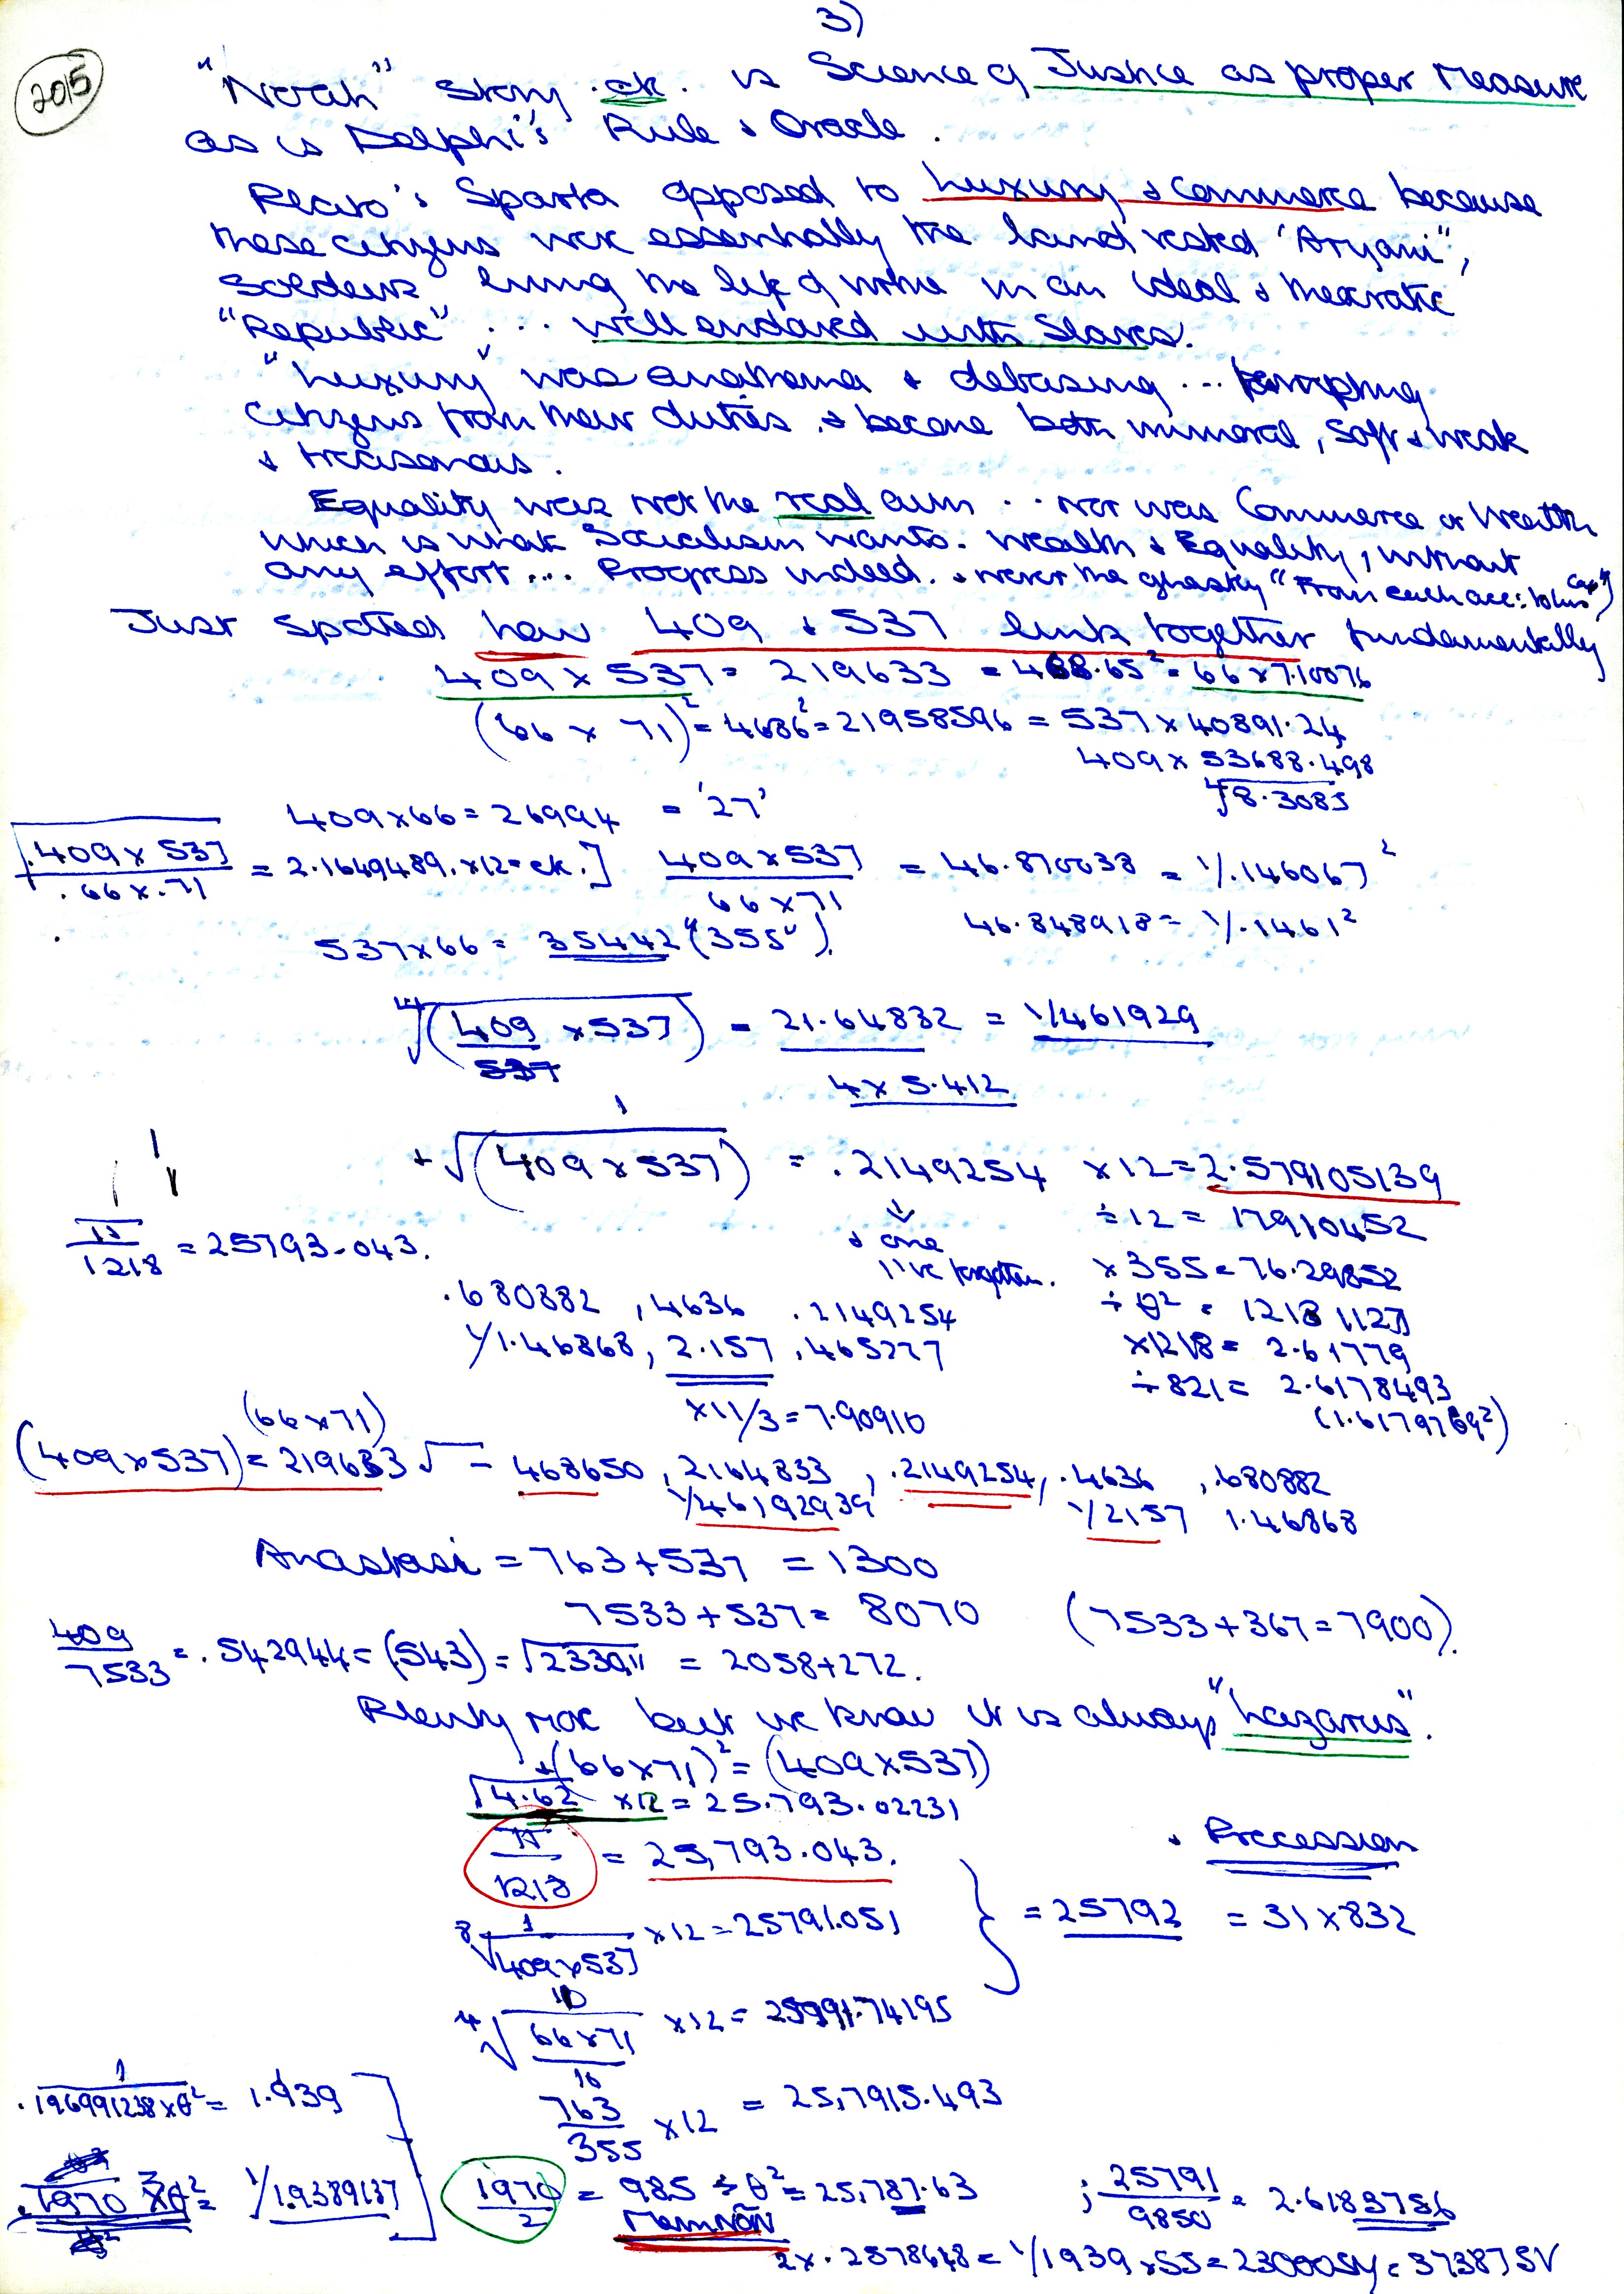 3)
2015
"Noah" story .ck. is Science of Justice as proper Measure
as is Delphi's Rule & Oracle.
Plato's Sparta opposed to Luxury & Commerce because
these citizens were essentially the land vested "Aryani",
soldiers living the life of in an ideal &
"Republic", ... well endowed with Slaves.
"Luxury" was anathema & debasing ...
citizens from their duties. & become both immoral, soft & weak
& treasonous.
Equality was not the real aim .. nor was Commerce or Wealth
which is what Socialism wants. Wealth & Equality, without
any effort... Progress indeed. & never the ghastly "From each acc: to his Cap")
Just spotted how 409 & 537 link together fundamentally
409 x 537 = 219633 = 468.65² = 66 x 7.10076
(66 x 71)² = 4686² = 21958596 = 537 x 40891.24
409 x 53688.498
8.3085
409x66 = 26994 = '27'
√.409 x 537 / .66 x .71 = 2.1649489. x12 = ck.] 409 x 537 / 66 x 71 = 46.870038 = 1/.146067²
537x66 = 35442 ("355"). 46.848918 = 1/.1461²
∜(409 x 537) = 21.64832 = 1/461929
4 x 5.412
+ √(409 x 537) = .2149254 x12 = 2.579105139
÷ 12 = 17910452
π / 1218 = 25793.043.
& one I've forgotten.
x 355 = 76.29852
÷ θ² = 1218 1127
.680882 , 4636 .2149254
x1218 = 2.61779
1/1.46868, 2.157 , .465277
÷ 821 = 2.6178493
x11/3 = 7.90910
(1.6179769²)
(66x71)
(409x537) = 219633 √ = 468650, 2164833, .2149254, .4636, .680882
1/46192939 1/2157 1.46868
Anastasi = 763 + 537 = 1300
7533 + 537 = 8070 (7533 + 367 = 7900).
409 / 7533 = .542944 = (543) = √2330.11 = 2058 + 272.
Plenty more but we know it is always "Lazarus".
+ (66x71)² = (409x537)
√4.62 x12 = 25.793.02231
π / 1218 = 25,793.043.
& Precession
8√ 1 / 409x537 x12 = 25791.051 } = 25792 = 31 x 832
4√ 10 / 66x71 x12 = 25791.74195
10
763 / 355 x12 = 25,7915.493
1 / .196991238 x θ² = 1.939
.1970 x θ² = 1/1.9389137
1970 / 2 = 985 ÷ θ² = 25,787.63 ; 25791 / 9850 = 2.6183756
2x .2578618 = 1/1939 x 55 =